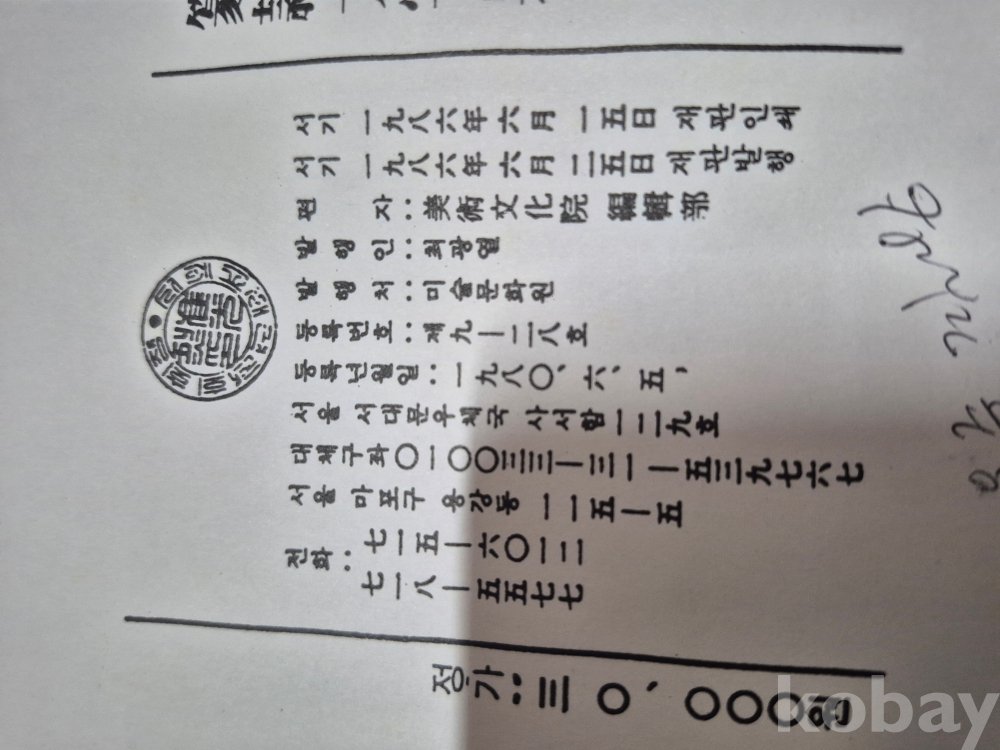 篆
서기 一九八六年 六月 一五日 재판인쇄
서기 一九八六年 六月 二五日 재판발행
편 자：美術文化院 編輯部
발 행 인：최광열
발 행 처：미술문화원
등록번호：제九—二八호
등록년월일：一九八〇、六、五，
서울 서대문우체국 사서함一一二九호
대체구좌〇一〇〇三三—三一—五三九七六七
서울 마포구 용강동 一一五—五
전화：七一五—六〇一二
七一八—五五七七
정가：三〇、〇〇〇원
kobay